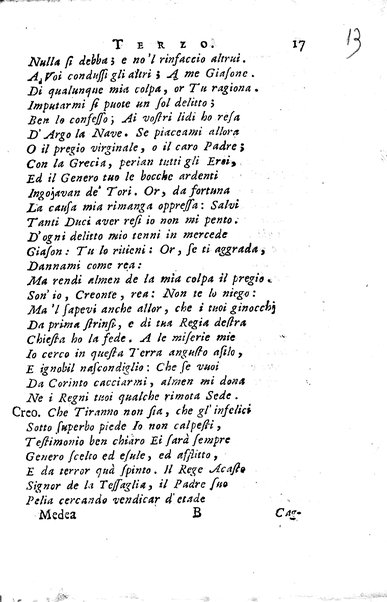 TERZO. 17
13
Nulla ſi debba; e no'l rinfaccio altrui.
A Voi conduſſi gli altri; A me Giaſone.
Di qualunque mia colpa, or Tu ragiona.
Imputarmi ſi puote un ſol delitto;
Ben lo confeſſo; Ai voſtri lidi ho reſa
D'Argo la Nave. Se piaceami allora
O il pregio virginale, o il caro Padre;
Con la Grecia, perian tutti gli Eroi,
Ed il Genero tuo le bocche ardenti
Ingojavan de' Tori. Or, da fortuna
La cauſa mia rimanga oppreſſa: Salvi
Tanti Duci aver reſi io non mi pento.
D'ogni delitto mio tenni in mercede
Giaſon: Tu lo ritieni: Or, ſe ti aggrada,
Dannami come rea:
Ma rendi almen de la mia colpa il pregio.
Son'io, Creonte, rea: Non te lo niego:
Ma'l ſapevi anche allor, che i tuoi ginocchj
Da prima ſtrinſi, e di tua Regia deſtra
Chieſta ho la fede. A le miſerie mie
Io cerco in queſta Terra anguſto aſilo,
E ignobil naſcondiglio: Che ſe vuoi
Da Corinto cacciarmi, almen mi dona
Ne i Regni tuoi qualche rimota Sede.
Creo. Che Tiranno non ſia, che gl'infelici
Sotto ſuperbo piede Io non calpeſti,
Teſtimonio ben chiaro Ei ſarà ſempre
Genero ſcelto ed eſule, ed afflitto,
E da terror quà ſpinto. Il Rege Acaſto
Signor de la Teſſaglia, il Padre ſuo
Pelia cercando vendicar d'etade
Medea B Cag-